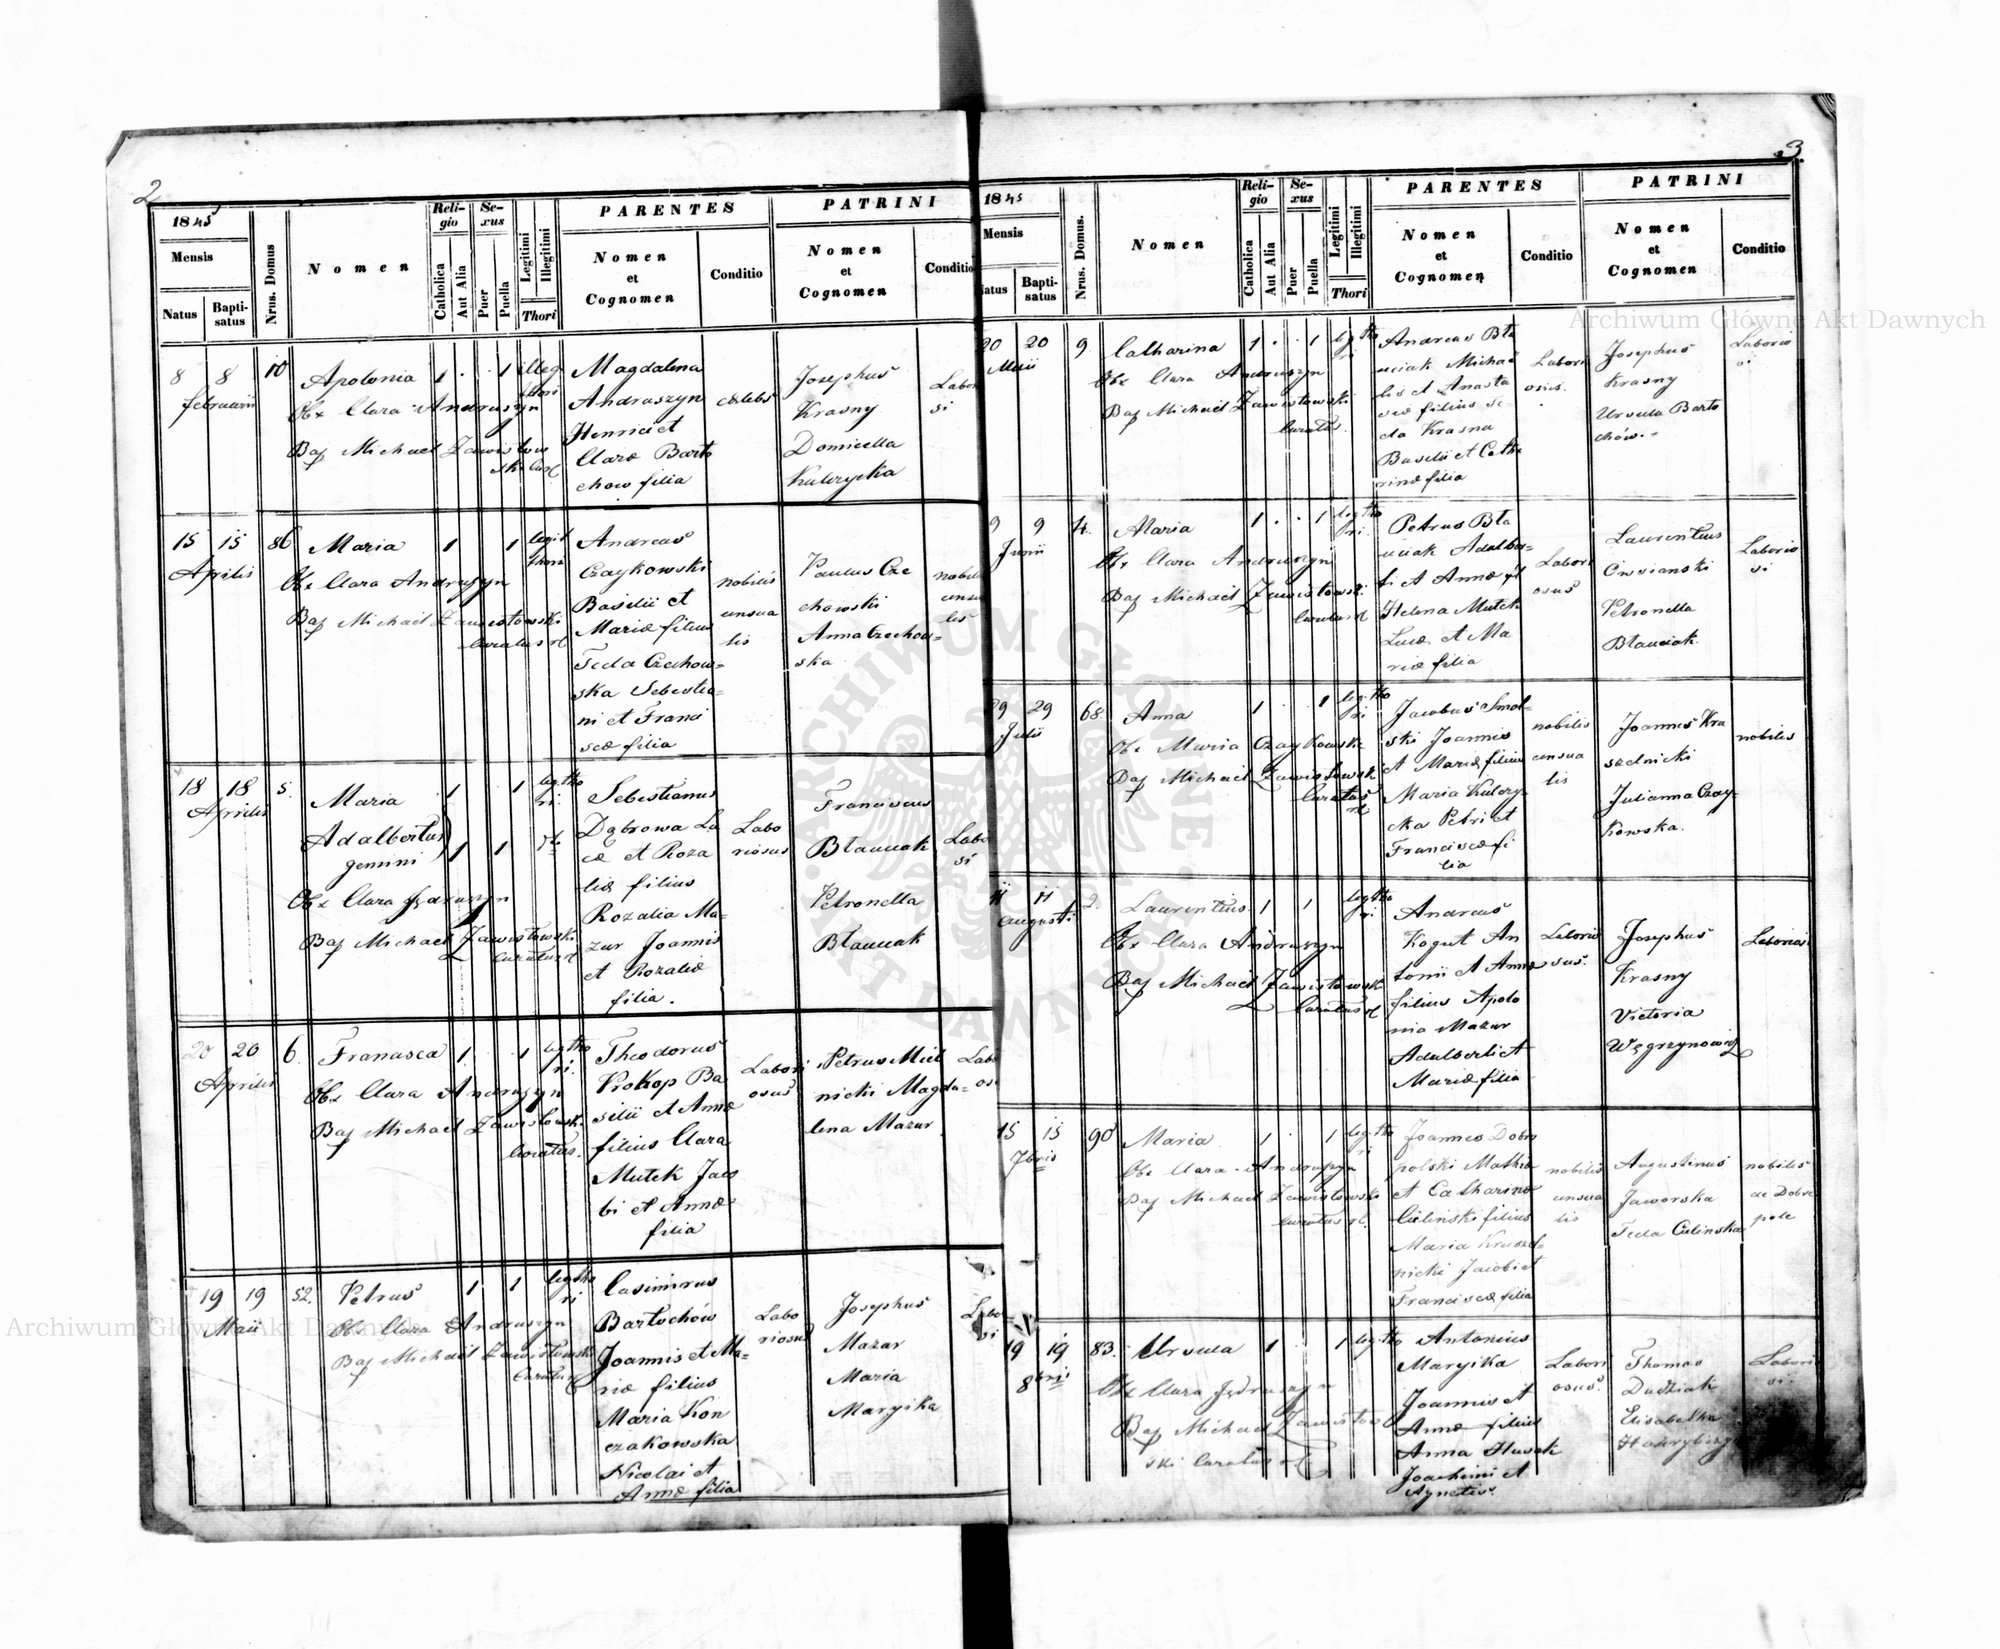 2
1845
Mensis
Natus
Bapti-
satus
Nrus. Domus
Nomen
Reli-
gio
Catholica
Aut Alia
Se-
xus
Puer
Puella
Legitimi
Illegitimi
Thori
PARENTES
Nomen
et
Cognomen
Conditio
PATRINI
Nomen
et
Cognomen
Conditio
8 8 10 Apolonia 1 . 1 illeg
februarii
thori
Obx Clara Andruszyn
Bap Michael Zawistow
ski Cur
Magdalena
Andruszyn
Henrici et
Claræ Barto
chow filia
cælebs
Josephus
Krasny
Domicella
Kulczycka
Labori
si
15 15 86 Maria 1 1 legit
Aprilis
thori
Obx Clara Andruszyn
Bap Michael Zawistowski
Curatus rl
Andreas
Czaykowski
Basilii et
Mariæ filius
Tecla Czechow=
ska Sebestia=
ni et Franci
scæ filia
nobilis
censua
lis
Paulus Cze
chowski
Anna Czechow=
ska
nobiles
censua
les
18 18 5. Maria 1 1 leg. tho
Aprilis
ri.
Adalbertus 1 1
gemini
Obx Clara Jędruszyn
Bap Michael Zawistowski
Curatus rl
Sebestianus
Dąbrowa Lu
cæ et Roza
liæ filius
Rozalia Ma=
zur Joannis
et Rozaliæ
filia.
Labo
riosus
Franciscus
Błauciak
Petronella
Błauciak
Labo
si
20 20 6. Francisca 1 . 1 leg tho
Aprilis
ri.
Obx Clara Andruszyn
Bap Michael Zawistowski
Curatus.
Theodorus
Prokop Ba
silii et Annæ
filius Clara
Mutek Jaco
bi et Annæ
filia
Labori
osus
Petrus Miel
nicki Magda=
lena Mazur
Labo
osi
19 19 52. Petrus 1 1 leg tho
Maii
ri
Obx Clara Andruszyn
Bap Michael Zawistowski
Curatus
Casimirus
Bartochów
Joannis et Ma=
riæ filius
Maria Kon
czakowska
Nicolai et
Annæ filia
Labo
riosus
Josephus
Mazur
Maria
Maryika
Labo
si
3.
1845
Mensis
Natus
Bapti-
satus
Nrus. Domus.
Nomen
Reli-
gio
Catholica
Aut Alia
Se-
xus
Puer
Puella
Legitimi
Illegitimi
Thori
PARENTES
Nomen
et
Cognomen
Conditio
PATRINI
Nomen
et
Cognomen
Conditio
20 20 9 Catharina 1 . . 1 leg tho
Maii
ri
Obx Clara Andruszyn
Bap Michael Zawistowski
Curatus.
Andreas Bła
uciak Micha
lis et Anasta
siæ filius Te
cla Krasna
Basilii et Catha
rinæ filia
Labori
osus.
Josephus
Krasny
Ursula Barto
chów.=
Laborio
si
9 9 4. Maria 1 . . 1 leg tho
Junii
ri.
Obx Clara Andruszyn
Bap Michael Zawistowski
Curatus rl
Petrus Bła
uciak Adalber=
ti et Annæ fil
Helena Mutek
Lucæ et Ma
riæ filia
Labori
osus
Laurentius
Ciesianski
Petronella
Błauciak.
Laborio
si
29 29 68. Anna 1 1 leg. tho
Julii
ri
Obx Maria Czaykowska
Bap Michael Zawistowski
Curatus
rl.
Jacobus Smol=
ski Joannis
et Mariæ filius
Maria Kulczy=
cka Petri et
Franciscæ fi
lia
nobilis
censua
lis
Joannes Kru
szelnicki
Julianna Czay=
kowska.
nobiles
11 11 2. Laurentius. 1 1 leg tho
Augusti
ri.
Obx Clara Andruszyn
Bap Michael Zawistowski
Curatus rl
Andreas
Kogut An
tonii et Annæ
filius Apolo
nia Mazur
Adalberti et
Mariæ filia
Laborio
sus.
Josephus
Krasny
Victoria
Węgrzynowicz
Laboriosi
15 15 90 Maria 1 . 1 leg. tho
7bris
ri
Obx Clara Andruszyn
Bap Michael Zawistowski
Curatus rl.
Joannes Dobro
polski Mathiæ
et Catharinæ
Cielinski filius
Maria Kruszel=
nicki Jacobi et
Franciscæ filia
nobilis
censua
lis
Augustinus
Jaworska
Tecla Cielinska
nobiles
de Dobro
pole
19 19 83. Ursula 1 . 1 leg tho
8bris
Obx Clara Jędruszyn
Bap Michael Zawistow
ski Curatus rl
Antonius
Maryika
Joannis et
Annæ filius
Anna Husak
Joachimi et
Agnetis.
Labori
osus.
Thomas
Dudziak
Elisabetha
Labori
si.
Archiwum Główne Akt Dawnych
Archiwum Główne Akt Dawnych
ARCHIWUM GŁÓWNE AKT DAWNYCH